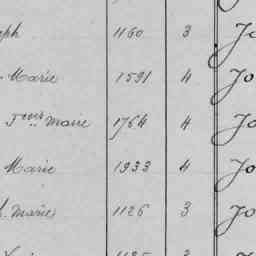 eph 1160 3 Jo
Marie 1591 4 Jo
Marie 1764 4 Jo
Marie 1933 4 Jo
Marie 1126 3 Jo